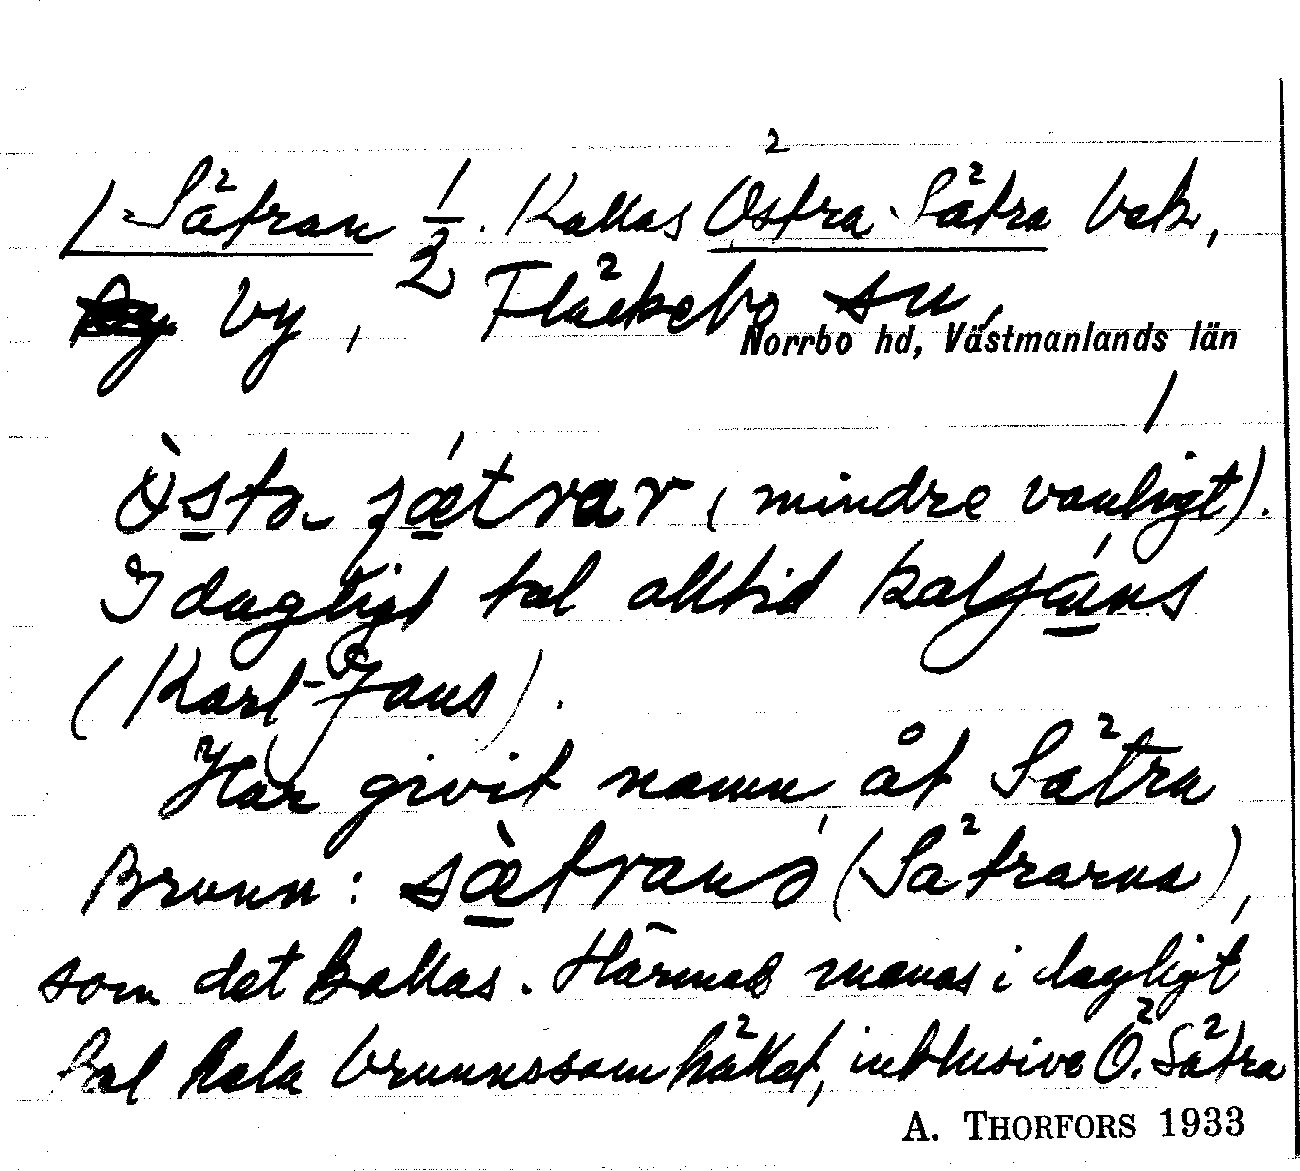 1 Sätran ½. Kallas Östra Sätra bek,
by, Fläckebo sn,
Norrbo hd, Västmanlands län
(mindre vanligt).
I dagligt tal alltid kaljáns
(Karl-Jans).
Har givit namn åt Sätra
Brunn: (Sätrarna),
som det kallas. Härmed menas i dagligt
tal hela brunnssamhället, inklusive Ö. Sätra
A. THORFORS 1933